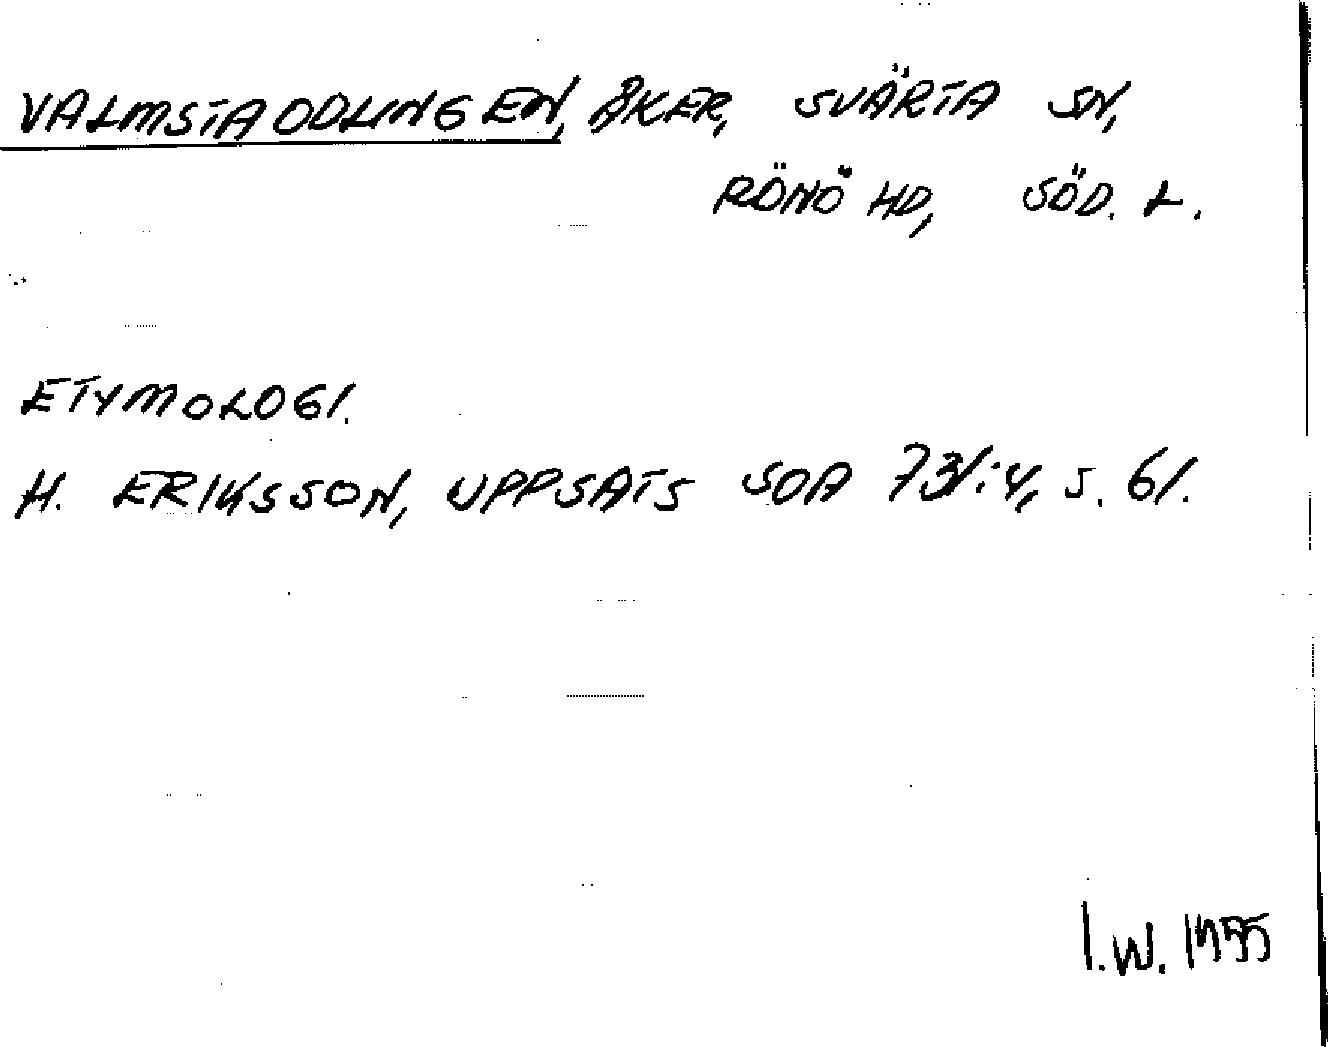 VALMSTAODLINGEN, ÅKER, SVÄRTA SN,
RÖNÖ HD, SÖD. L.
ETYMOLOGI.
H. ERIKSSON, UPPSATS SOA 731:4, S. 61.
I.W.